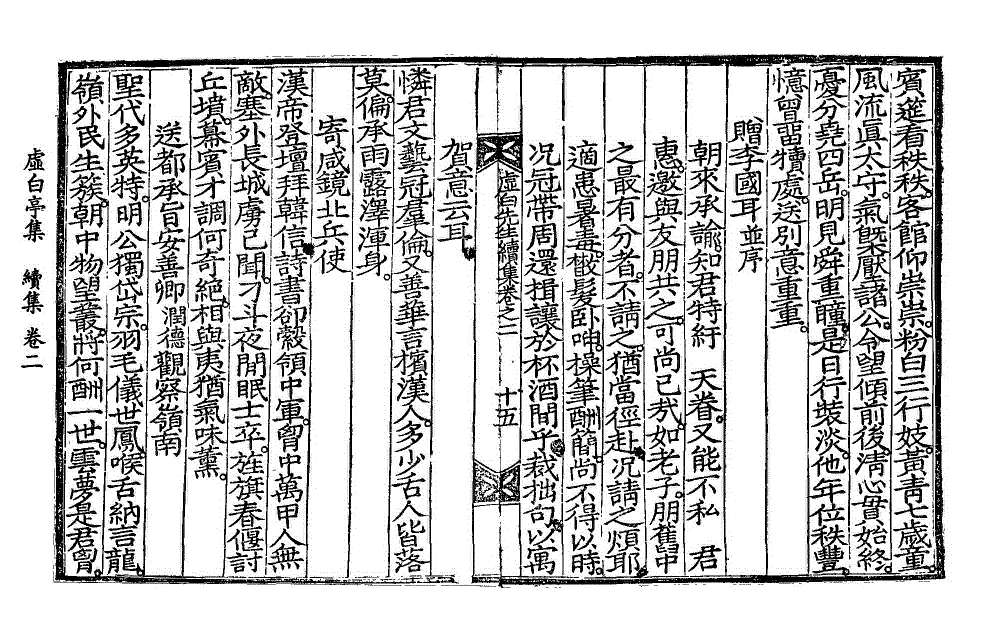 賓筵看秩秩。客館仰崇崇。粉白三行妓。黃靑七歲童。
風流眞太守。氣旣壓諸公。令望傾前後。淸心貫始終。
憂分堯四岳。明見舜重瞳。是日行裝淡。他年位秩豐。
憶曾留犢處。送別意重重。
贈李國耳並序
朝來承諭。知君特紆 天眷。又能不私 君
惠。邀與友朋共之。可尙已哉。如老子。朋舊中
之最有分者。不請之。猶當徑赴。况請之煩耶。
適患暑毒。散髮臥呻。操筆酬簡。尙不得以時。
况冠帶周還揖讓於杯酒間乎。裁拙句以寓
賀意云耳。
虛白先生續集卷之二 十五
憐君文藝冠羣倫。又善華言擯漢人。多少舌人皆落
莫。偏承雨露澤渾身。
寄咸鏡北兵使
漢帝登壇拜韓信。詩書卻縠領中軍。胷中萬甲人無
敵。塞外長城虜已聞。刁斗夜閒眠士卒。旌旗春偃討
丘墳。幕賓才調何奇絶。相與夷猶氣味薰。
送都承旨安善卿潤德觀察嶺南
聖代多英特。明公獨岱宗。羽毛儀世鳳。喉舌納言龍。
嶺外民生簇。朝中物望叢。將何酬一世。雲夢是君胷。
虛白亭集 續集 卷二